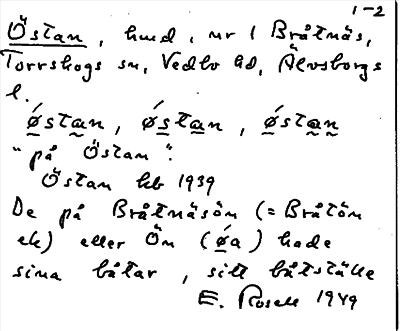 1-2
Östan, hmd, nr 1 Bråtnäs,
Torrskogs sn, Vedbo hd, Älvsborgs
l.
østan, østan, østan
"på Östan".
Östan kb 1939
De på Bråtnäsön (= Bråtön
ek) eller Ön (øa) hade
sina båtar, sitt båtställe
E. Rosell 1949